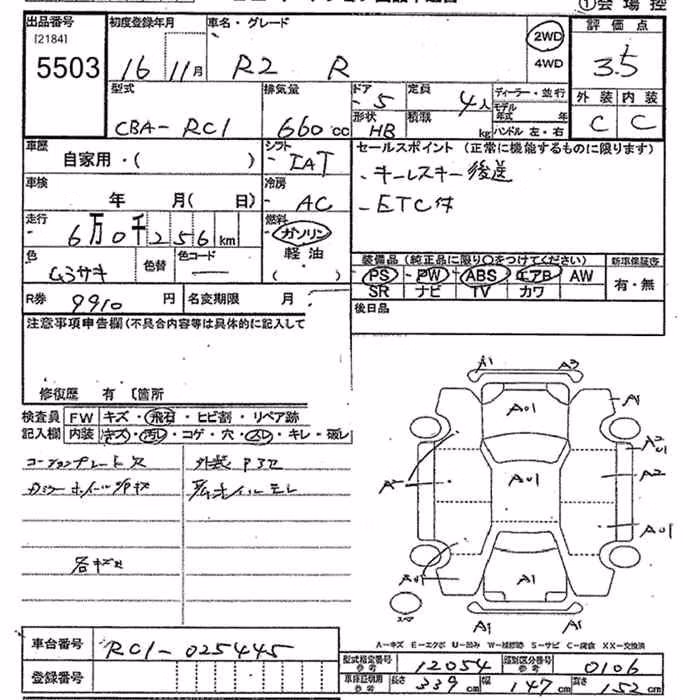 ①会場控
出品番号 初度登録年月 車名・グレード 2WD 評価点
[2184]
5503 16 11月 R2 R 4WD 3.5
型式 排気量 ドア 定員 ディーラー・並行 外装 内装
5 4人 モデル年式 年
CBA-RC1 660cc 形状 積載 C C
HB kg ハンドル 左・右
車歴 シフト セールスポイント (正常に機能するものに限ります)
自家用・( ) IAT ・キーレスキー後送
車検 冷房
年 月( 日) AC ・ETC付
走行 燃料
6万0千256km ガソリン
色 色替 色コード 軽油 装備品 (純正品に限り○をつけてください) 新車保証書
ムラサキ ー ( ) PS PW ABS エアB AW 有・無
SR ナビ TV カワ
R券 9910円 名変期限 月 後日品
注意事項申告欄(不具合内容等は具体的に記入して
修復歴 有 〔箇所
検査員 FW キズ・飛石・ヒビ割・リペア跡
記入欄 内装 キズ・汚レ・コゲ・穴・スレ・キレ・破レ
コーションプレート欠
各キズ
A1 A3
A01 A1
A2
A01
A A01 A2
A01
A01 A1
スペア A1 A1
A-キズ E-エクボ U-凹み W-補修跡 S-サビ C-腐食 XX-交換済
車台番号 RC1-025445
登録番号
型式指定番号 参考 12054 類別区分番号 参考 0106
車庫証明用 参考 長さ 339cm 幅 147cm 高さ 152cm